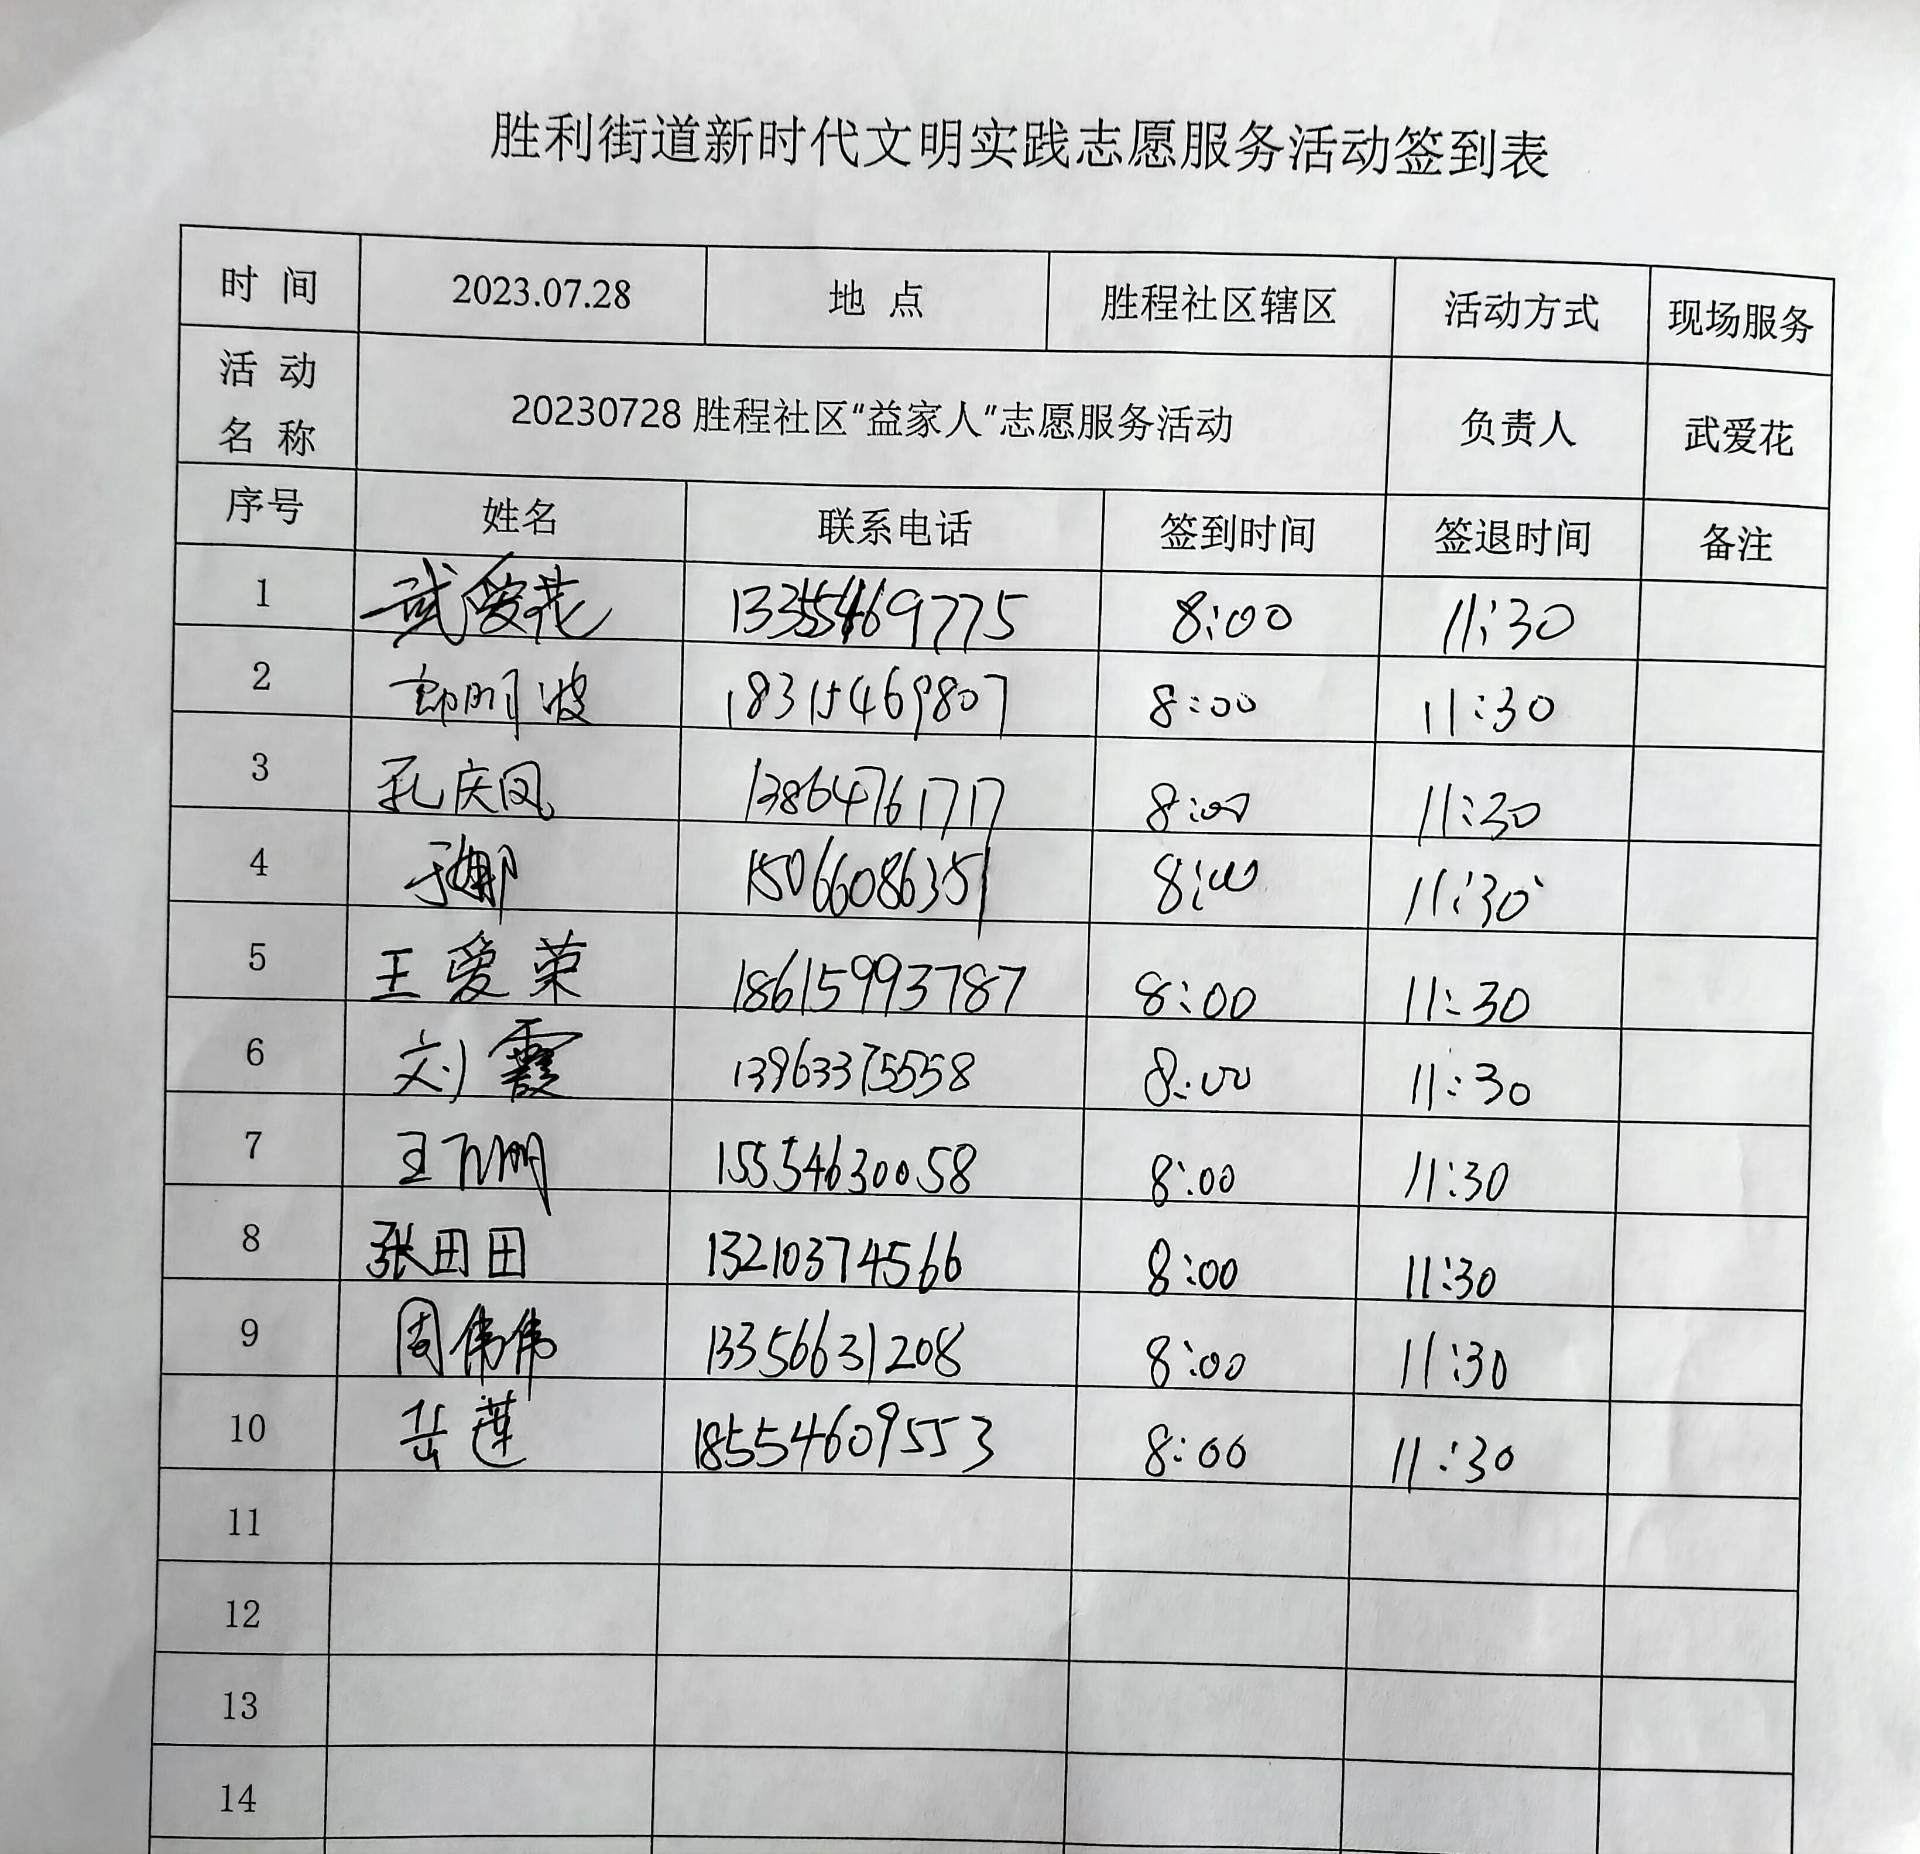 胜利街道新时代文明实践志愿服务活动签到表
时 间 2023.07.28 地 点 胜程社区辖区 活动方式 现场服务
活 动
名 称 20230728胜程社区“益家人”志愿服务活动 负责人 武爱花
序号 姓名 联系电话 签到时间 签退时间 备注
1 武爱花 8:00 11:30
2 18315469807 8:00 11:30
3 孔庆凤 13864761717 8:00 11:30
4 于娜 15066086351 8:00 11:30
5 王爱荣 18615993787 8:00 11:30
6 刘霞 13963375558 8:00 11:30
7 15554630058 8:00 11:30
8 张田田 13210374566 8:00 11:30
9 周伟伟 13356631208 8:00 11:30
10 岳莲 18554609553 8:00 11:30
11
12
13
14